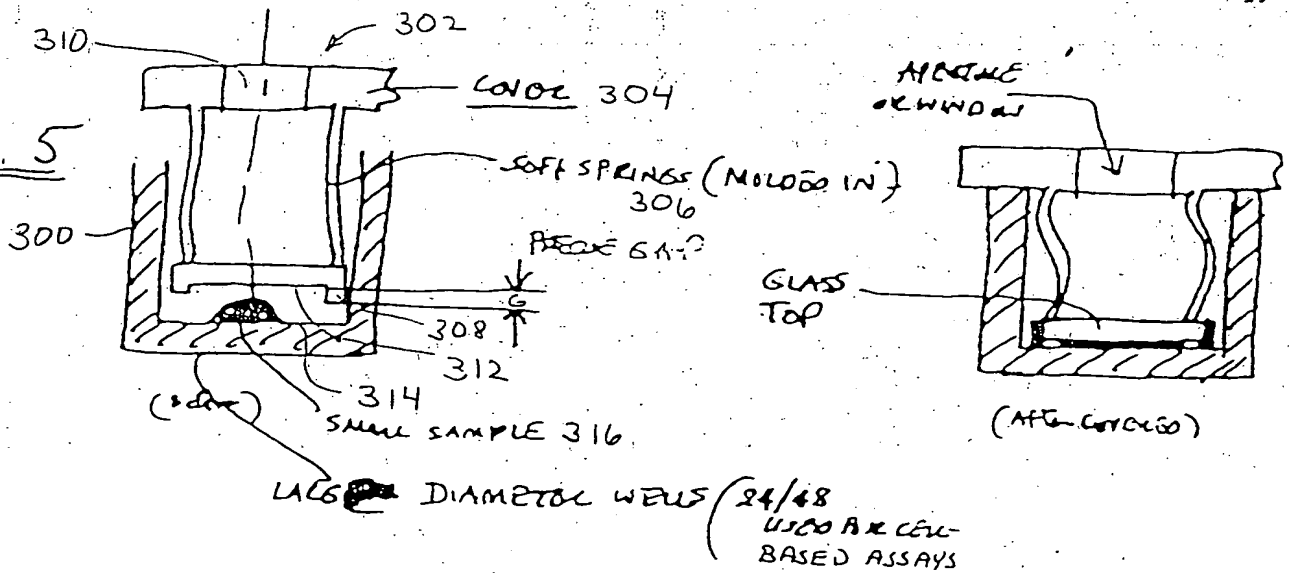 310
302
COVER 304
. 5
SOFT SPRINGS (MOLDED IN)
306
300
GAP
G
308
312
314
SMALL SAMPLE 316
LARGE DIAMETER WELLS (24/48
USED FOR CELL-
BASED ASSAYS
APERTURE
OR WINDOW
GLASS
TOP
(AFTER COVERED)